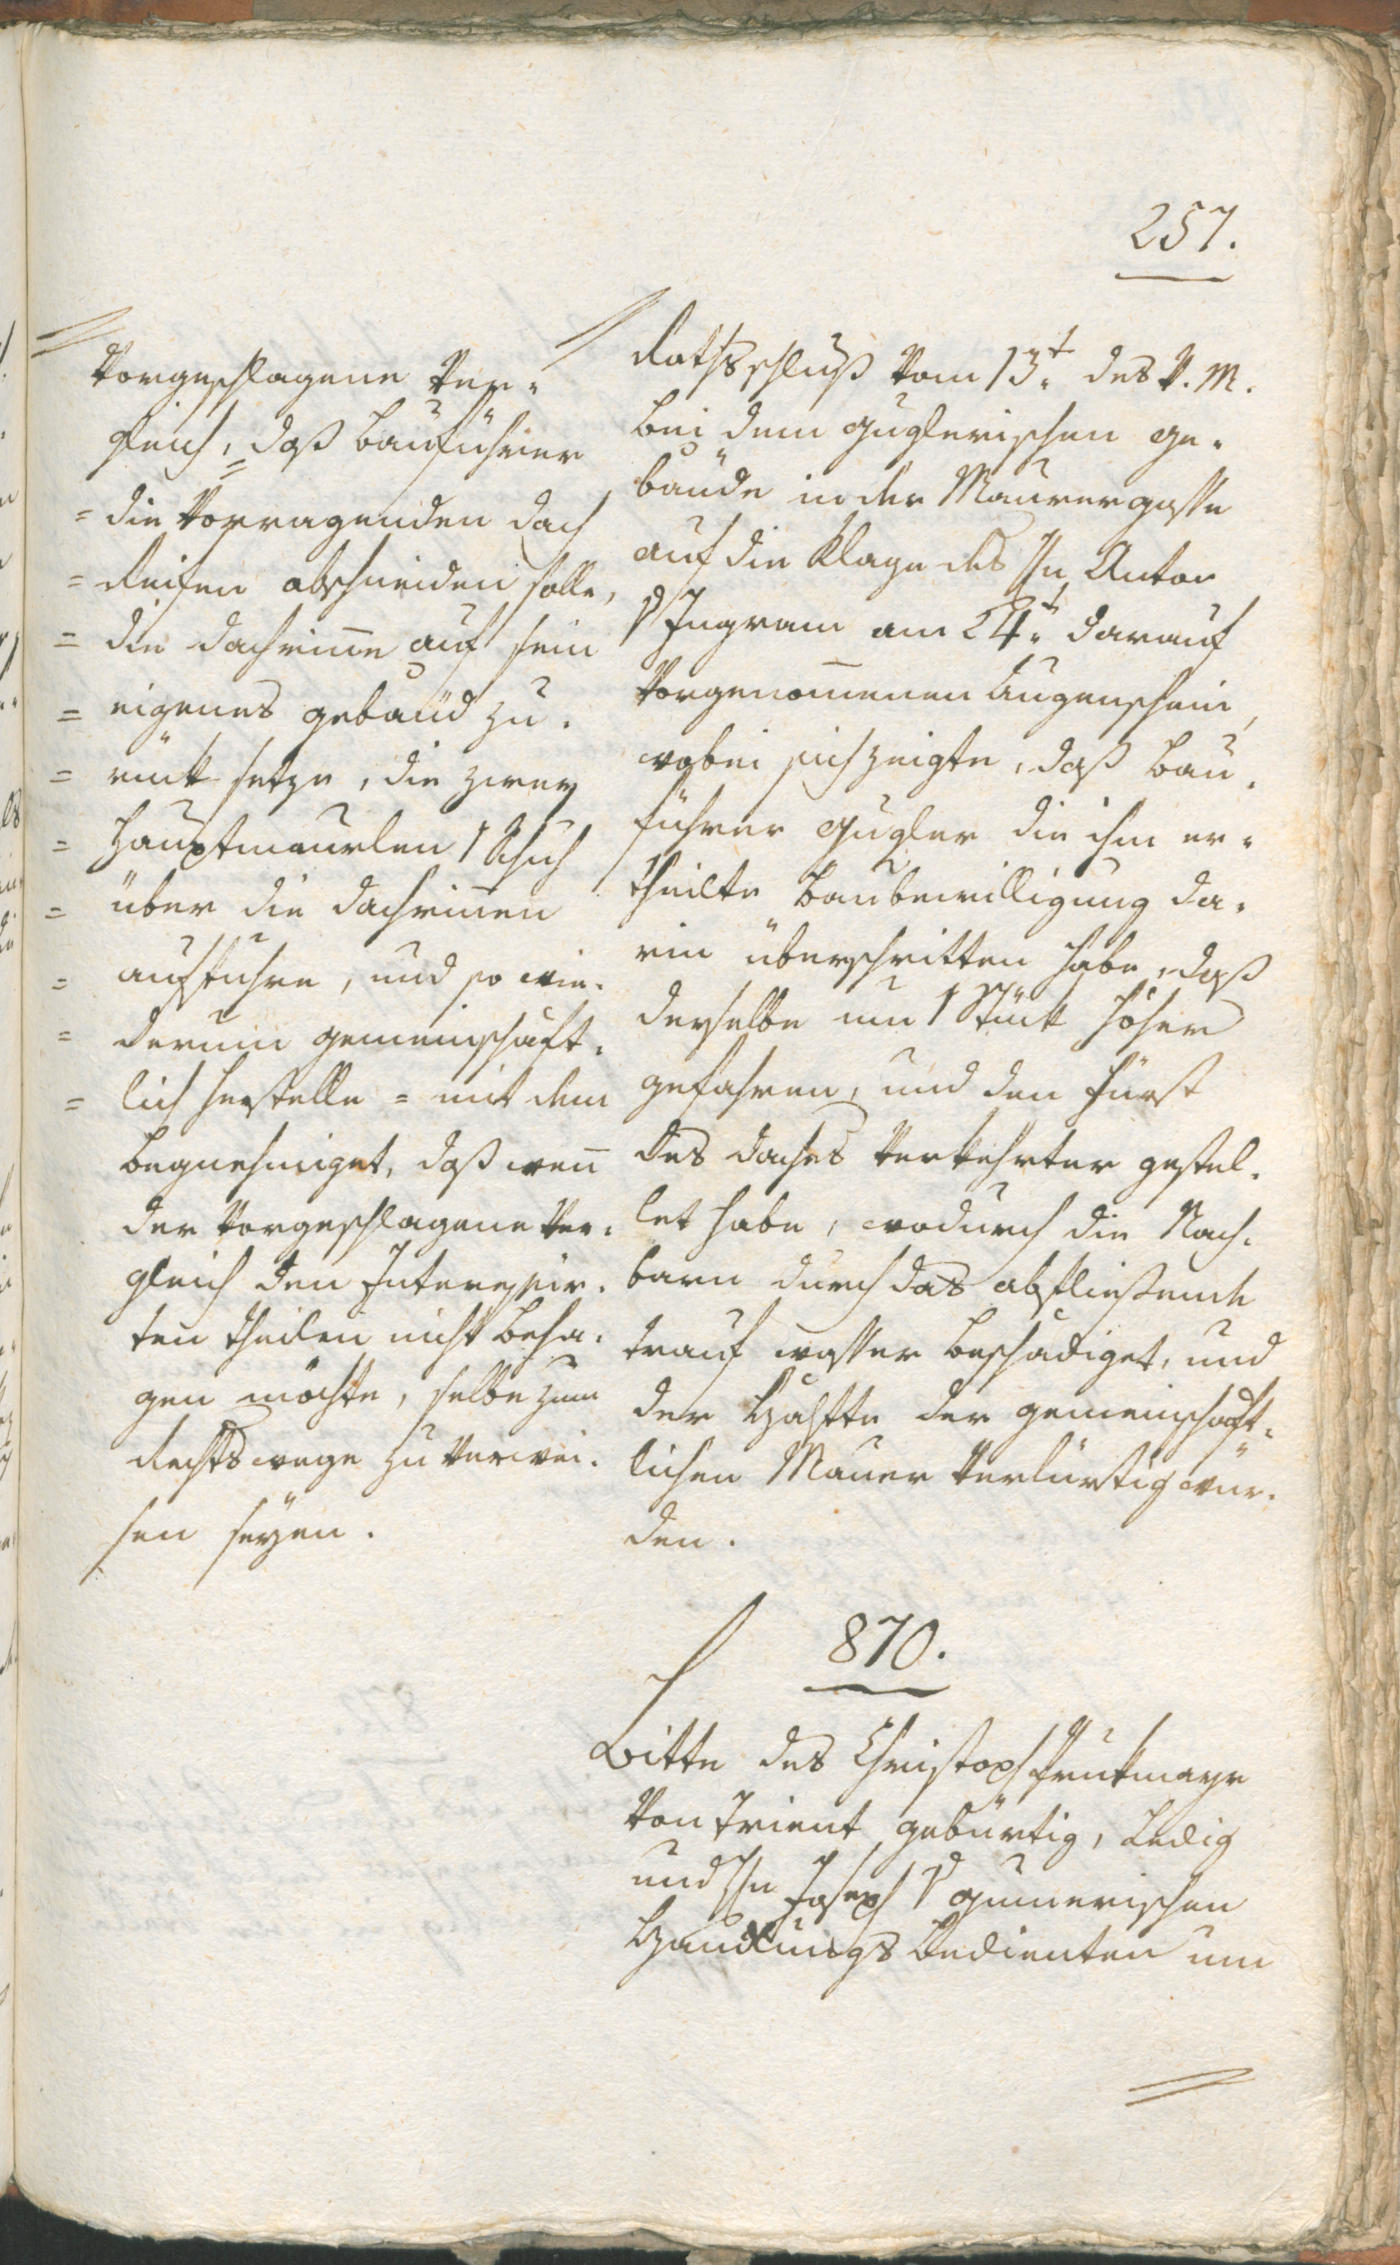 257.
Vorgeschlagene Ver=
gleich, daß Bauführer
= die Vorragenden Dach
= Reisen abschneiden solle,
= die Dachrinne auf sein
= eigenes Gebäud zu=
= rück setze, die zwey
= Hauptmäurlen 1 Schuh
= über die Dachrinnen
= aufführe, und so wie=
= derum gemeinschäft=
= lich herstelle = mit dem
begnehmiget, daß wenn
der Vorgeschlagene Ver=
gleich den Interessir=
ten Theilen nicht beha=
gen möchte, selbe zum
Rechtswege zu verwei=
sen seyen.
Rathsschluß Vom 13t. des v. M.
bei dem Guglerischen Ge=
bäude in der Maurergasse
auf die Klage des Hn Anton
v Ingram am 24t. darauf
Vorgenommenen Augenschein,
wobei sich zeigte, daß Bau=
führer Gugler die ihm er=
theilte Baubewilligung da=
rin überschritten habe, daß
derselbe um 1 Stück höher
gefahren, und den Fürst
des Daches Verkehrter gestel=
let habe, wodurch die Nach=
barn durch das abfließende
Trauf wasser beschädiget, und
der Hälfte der gemeinschäft=
lichen Mauer verlürstig wür=
den.
870.
Bitte des Christoph
Von Trient gebürtig, Ledig
und Hn Joseph v Gumerischen
Handlungs Bedienten um